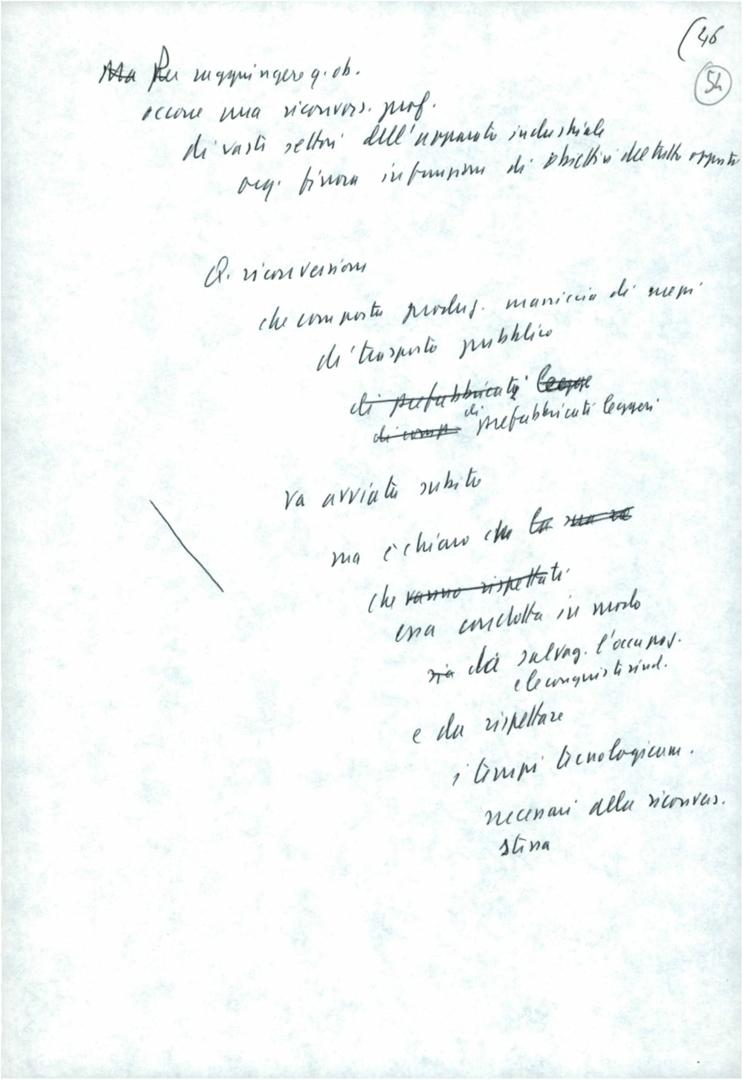 (46
54
Ma Per raggiungere q. ob.
occorre una riconvers. prof.
di vasti settori dell'apparato industriale
org. finora in funzione di obiettivi del tutto opposti
Q. riconversione
che comporta produz. massiccia di mezzi
di trasporto pubblico
di prefabbricati legge
di comp. di prefabbricati leggeri
va avviata subito
ma è chiaro che la sua
che vanno rispettati
essa condotta in modo
sia da salvag. l'occupaz.
e le conquiste sind.
e da rispettare
i tempi tecnologicam.
necessari della riconvers.
stessa